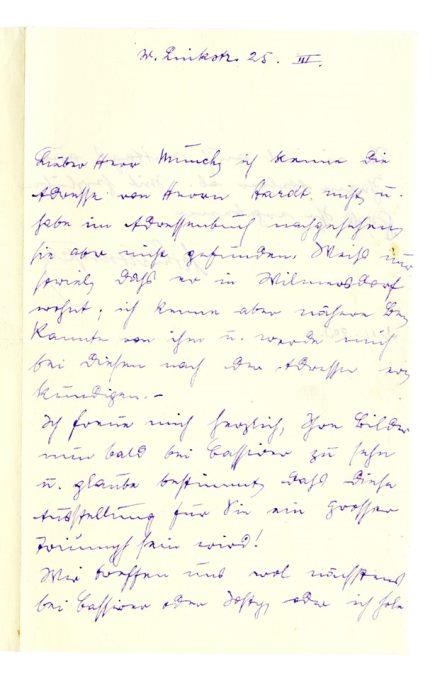 W. Linkstr. 25. III.
Lieber Herr Munch, ich kenne die
Adresse von Herrn Hardt nicht u.
habe im Adressenbuch nachgesehen,
sie aber nicht gefunden. Weiß nur
soviel, daß er in Wilmersdorf
wohnt; ich kenne aber nähere Be-
kannte von ihm u. werde mich
bei diesen nach der Adresse er-
kundigen.–
Ich freue mich herzlich, Ihre Bilder
nun bald bei Cassirer zu sehn
u. glaube bestimmt, daß diese
Ausstellung für Sie ein grosser
Triumph sein wird!
Wir treffen uns wol nächstens
bei Cassirer oder Josty, oder ich hole